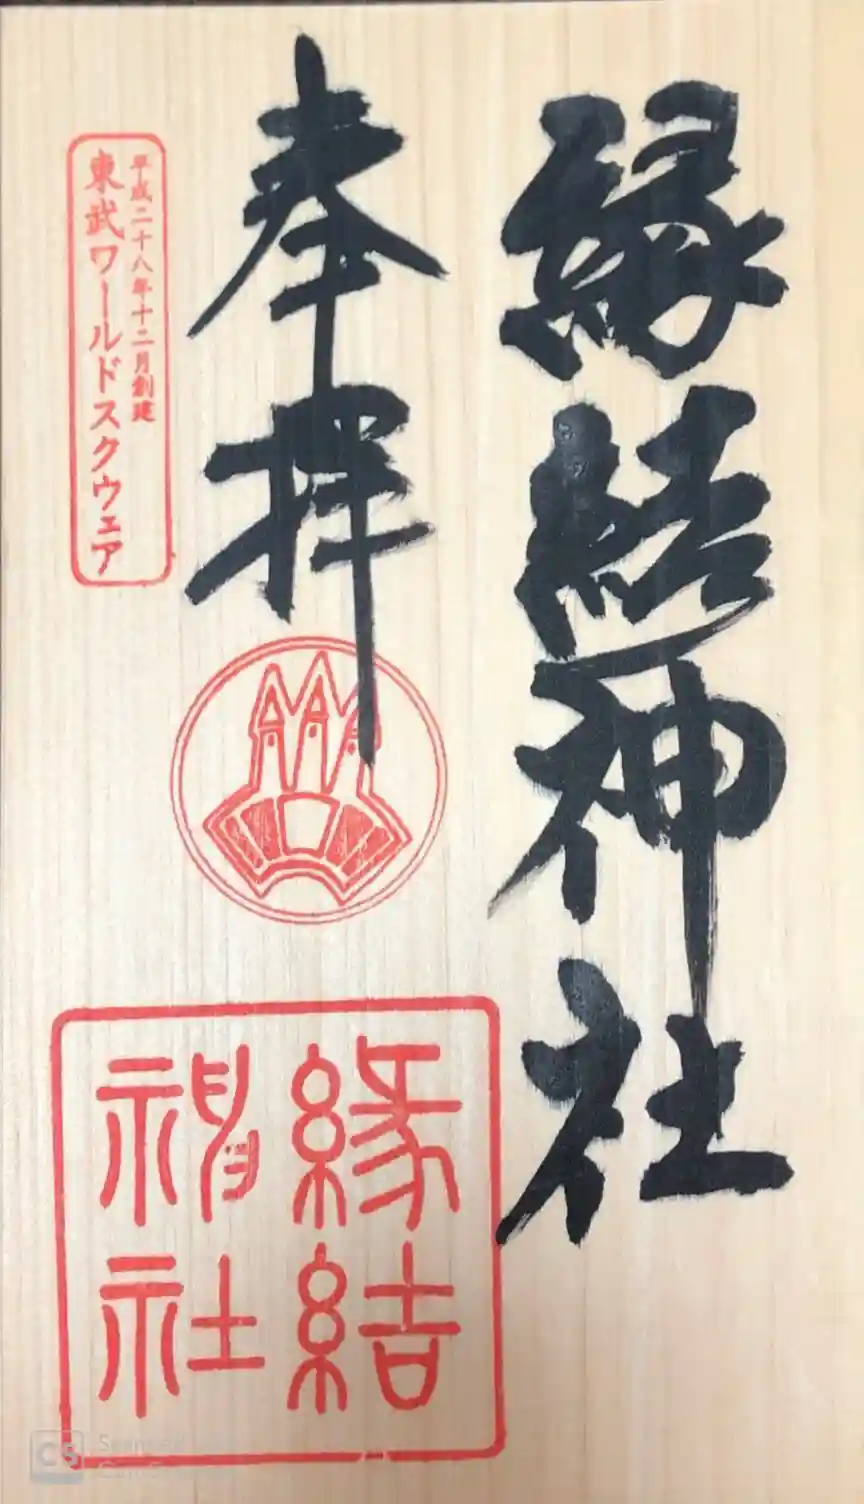 縁結神社
奉拝
平成二十八年十二月創建
東武ワールドスクウェア
縁結
神社
CS